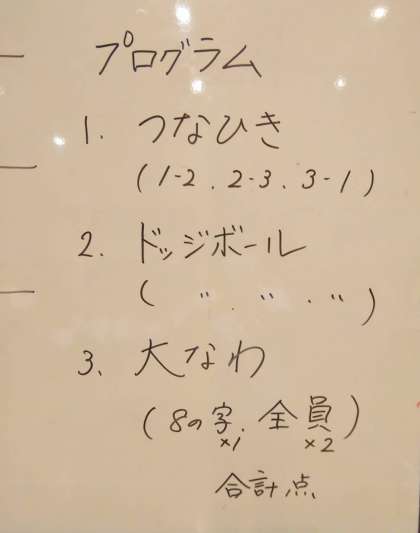 プログラム
1. つなひき
(1-2. 2-3. 3-1)
2. ドッジボール
( 〃 . 〃 . 〃 )
3. 大なわ
(8の字. 全員)
×1 ×2
合計点